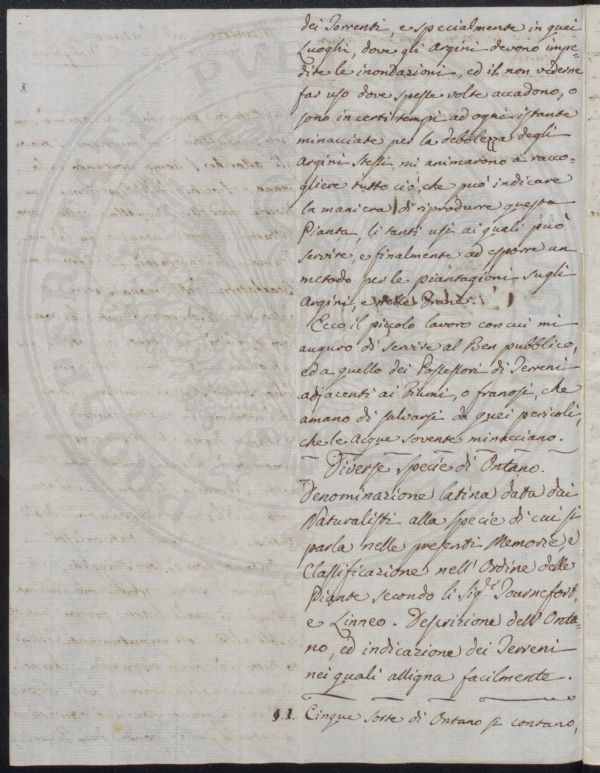 dei Torrenti, e specialmente in quei
Luoghi, dove gli Argini devono impe-
dire le inondazioni, ed il non vederne
far uso dove spesse volte accadono, o
sono in certi tempi ad ogni istante
minacciate per la debolezza degli
Argini stessi mi animarono a racco-
gliere tutto ciò, che può indicare
la maniera di riprodurre questa
Pianta, li tanti usi ai quali può
servire, e finalmente ad esporre un
metodo per le piantagioni sugli
Argini, e nelle
Ecco il picolo lavoro con cui mi
auguro di servire al Ben pubblico,
ed a quello dei Possessori di Terreni
adjacenti ai Fiumi, o franosi, che
amano di salvarsi da quei pericoli,
che le Acque sovente minacciano.
Diverse specie di Ontano.
Denominazione latina data dai
Naturalisti alla specie di cui si
parla nelle presenti Memorie e
Classificazione nell'Ordine delle
Piante secondo li Sig.ri Tournefort
e Linneo. Descrizione dell'Onta-
no, ed indicazione dei Terreni
nei quali alligna facilmente.
§.1. Cinque sorte di Ontano si contano,